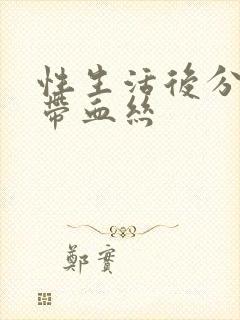 性生活後分
帶血絲
鄭實